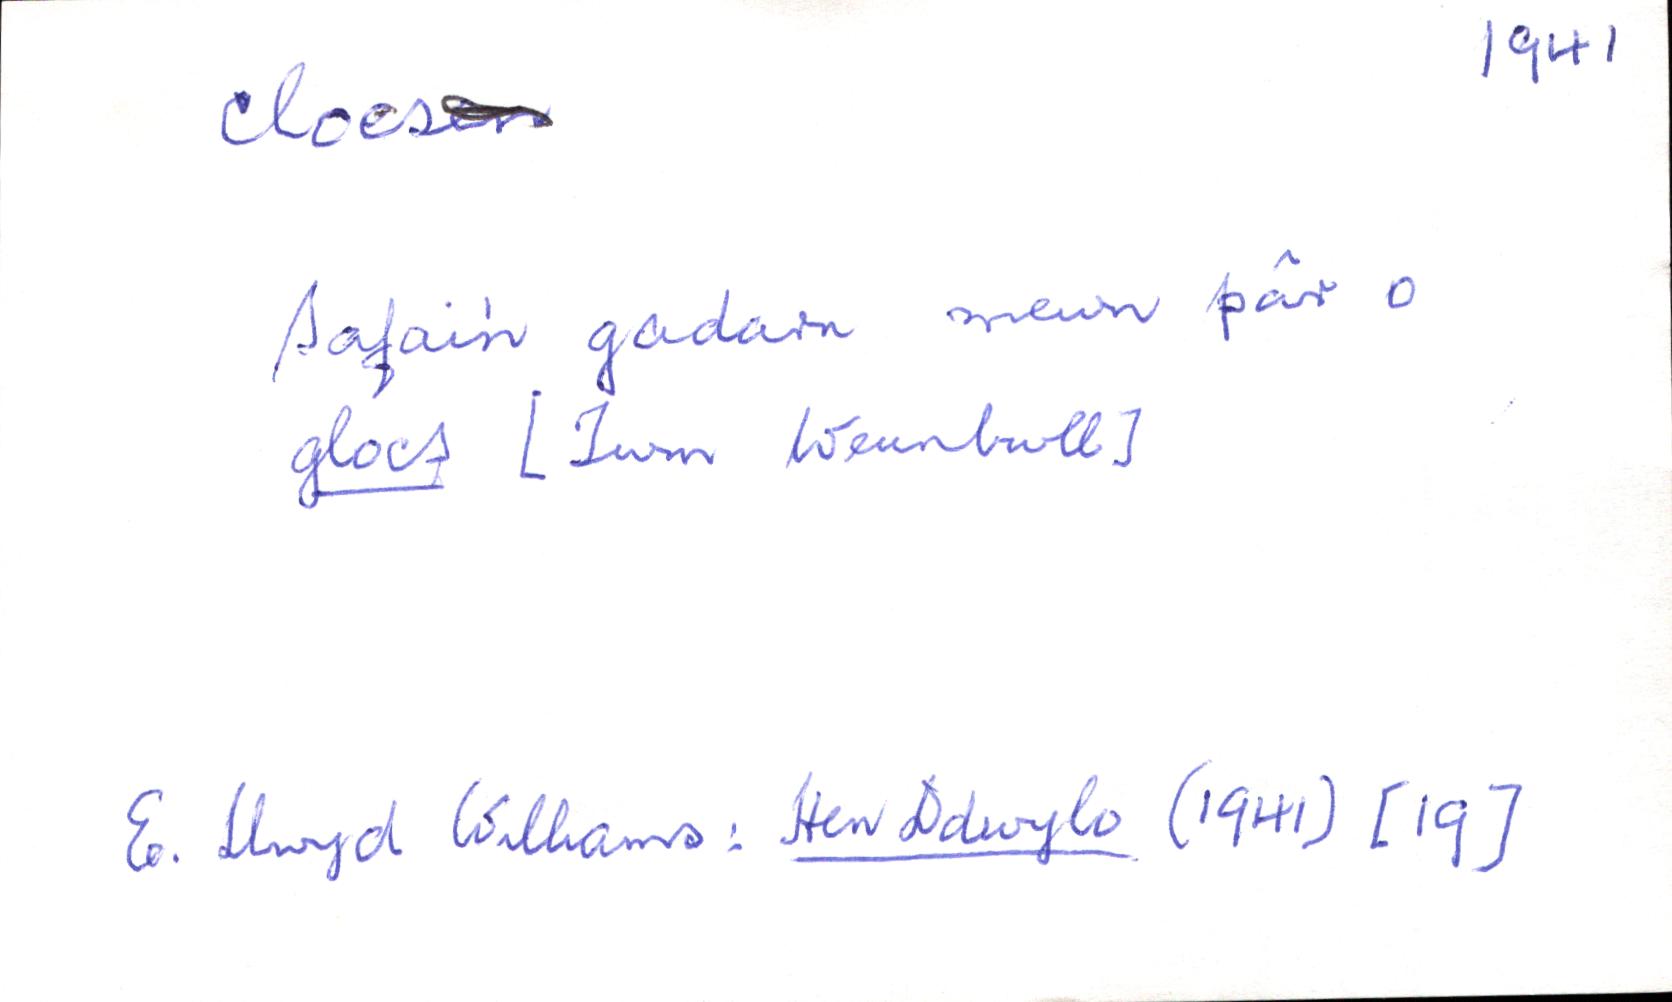 1941
clocs
safain gadarn mewn pâr o
glocs [Twm Weunbwll]
E. Llwyd Williams: Hen Ddwylo (1941) [19]